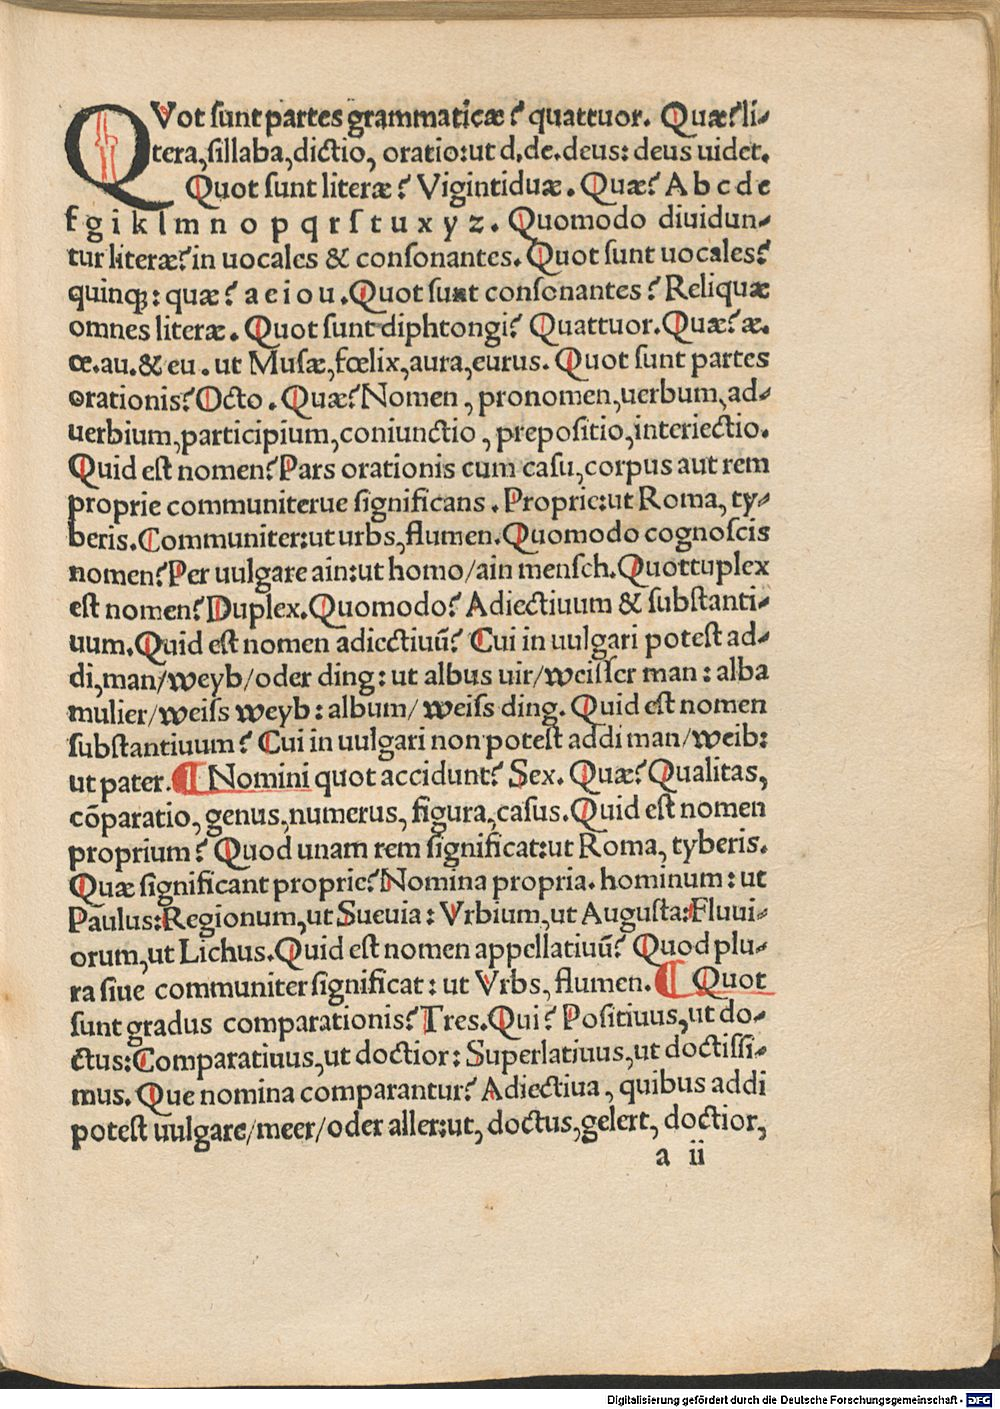 QVot sunt partes grammaticæ? quattuor. Quæ? li-
tera, sillaba, dictio, oratio: ut d. de. deus: deus uidet.
Quot sunt literæ? Vigintiduæ. Quæ? A b c d e
f g i k l m n o p q r ſ t u x y z. Quomodo diuidun-
tur literæ? in uocales & consonantes. Quot sunt uocales?
quinqꝫ: quæ? a e i o u. Quot sunt consonantes? Reliquæ
omnes literæ. Quot sunt diphtongi? Quattuor. Quæ? æ.
œ. au. & eu. ut Musæ, fœlix, aura, eurus. Quot sunt partes
orationis? Octo. Quæ? Nomen, pronomen, uerbum, ad-
uerbium, participium, coniunctio, prepositio, interiectio.
Quid est nomen? Pars orationis cum casu, corpus aut rem
proprie communiterue significans. Proprie: ut Roma, ty-
beris. Communiter: ut urbs, flumen. Quomodo cognoscis
nomen? Per uulgare ain: ut homo/ain mensch. Quottuplex
est nomen? Duplex. Quomodo? Adiectiuum & substanti-
uum. Quid est nomen adiectiuū? Cui in uulgari potest ad-
di, man/weyb/oder ding: ut albus uir/weisser man: alba
mulier/weiss weyb: album/weiss ding. Quid est nomen
substantiuum? Cui in uulgari non potest addi man/weib:
ut pater. ¶ Nomini quot accidunt? Sex. Quæ? Qualitas,
cōparatio, genus, numerus, figura, casus. Quid est nomen
proprium? Quod unam rem significat: ut Roma, tyberis.
Quæ significant proprie? Nomina propria. hominum: ut
Paulus: Regionum, ut Sueuia: Vrbium, ut Augusta: Fluui-
orum, ut Lichus. Quid est nomen appellatiuū? Quod plu-
ra siue communiter significat: ut Vrbs, flumen. ¶ Quot
sunt gradus comparationis? Tres. Qui? Positiuus, ut do-
ctus: Comparatiuus, ut doctior: Superlatiuus, ut doctissi-
mus. Que nomina comparantur? Adiectiua, quibus addi
potest uulgare/meer/oder aller: ut, doctus, gelert, doctior,
a ii
Digitalisierung gefördert durch die Deutsche Forschungsgemeinschaft - DFG